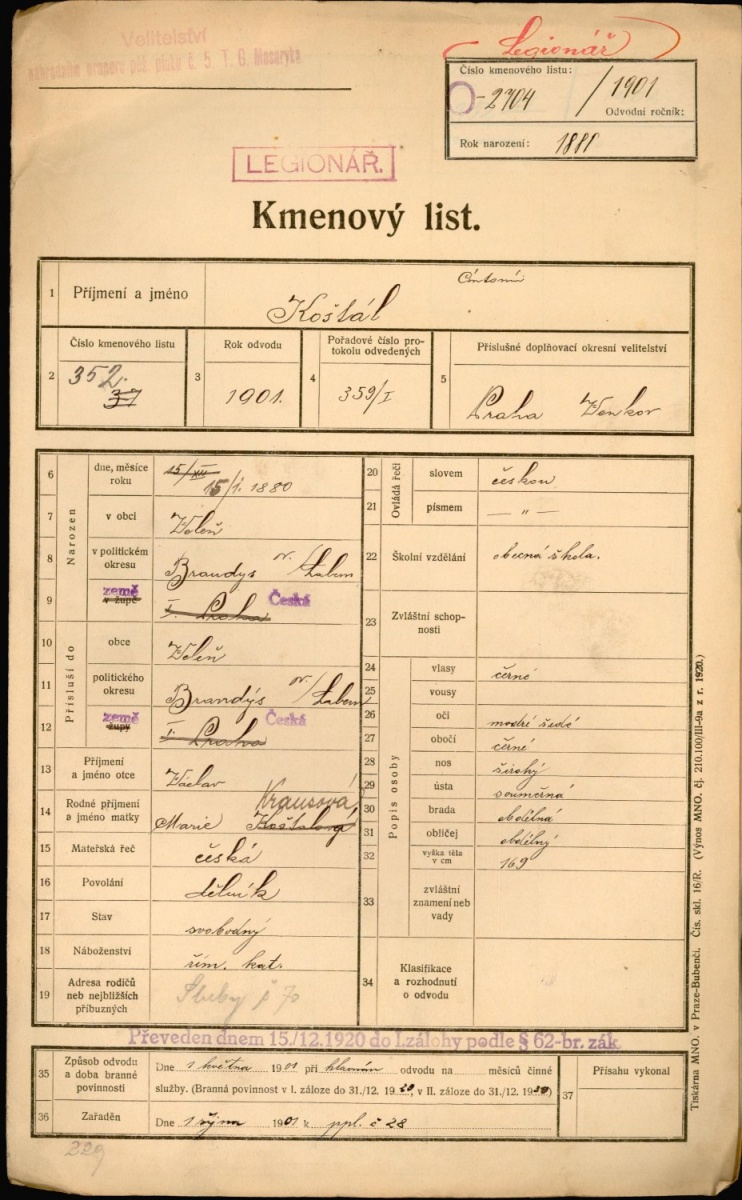 Velitelství
náhradního praporu pěš. pluku č. 5 T. G. Masaryka
Legionář
Číslo kmenového listu:
2704 / 1901
Odvodní ročník:
Rok narození:
LEGIONÁŘ.
Kmenový list.
1 Příjmení a jméno Koštál Antonín
2 Číslo kmenového listu 352. 37
3 Rok odvodu 1901.
4 Pořadové číslo pro-
tokolu odvedených 359/I
5 Příslušné doplňovací okresní velitelství Praha Venkov
Narozen
6 dne, měsíce
roku 15/XII 15/1. 1880
7 v obci Veleň
8 v politickém
okresu Brandýs n/Labem
9 země
v župě I. Praha Česká
Přísluší do
10 obce Veleň
11 politického
okresu Brandýs n/Labem
12 země
župy I. Praha Česká
13 Příjmení
a jméno otce Václav
14 Rodné příjmení
a jméno matky Marie Koštalová Krausová
15 Mateřská řeč česká
16 Povolání dělník
17 Stav svobodný
18 Náboženství řím. kat.
19 Adresa rodičů
neb nejbližších
příbuzných
Ovládá řeči
20 slovem českou
21 písmem — „ —
22 Školní vzdělání obecná škola.
23 Zvláštní schop-
nosti
Popis osoby
24 vlasy černé
25 vousy
26 oči modré šedé
27 obočí černé
28 nos široký
29 ústa souměrná
30 brada obdélná
31 obličej obdélný
32 výška těla
v cm 169
33 zvláštní
znamení neb
vady
34 Klasifikace
a rozhodnutí
o odvodu
Převeden dnem 15./12. 1920 do I. zálohy podle § 62-br. zák.
35 Způsob odvodu
a doba branné
povinnosti
Dne 1 května 1901 při hlavním odvodu na měsíců činné
služby. (Branná povinnost v I. záloze do 31./12. 1920, v II. záloze do 31./12. 1930)
36 Zařaděn Dne 1 října 1901 k ppl. č 28
37 Přísahu vykonal
229
Tiskárna MNO. v Praze-Bubenči. Čís. skl. 16/R. (Výnos MNO. čj. 210.100/III-9a z r. 1920.)